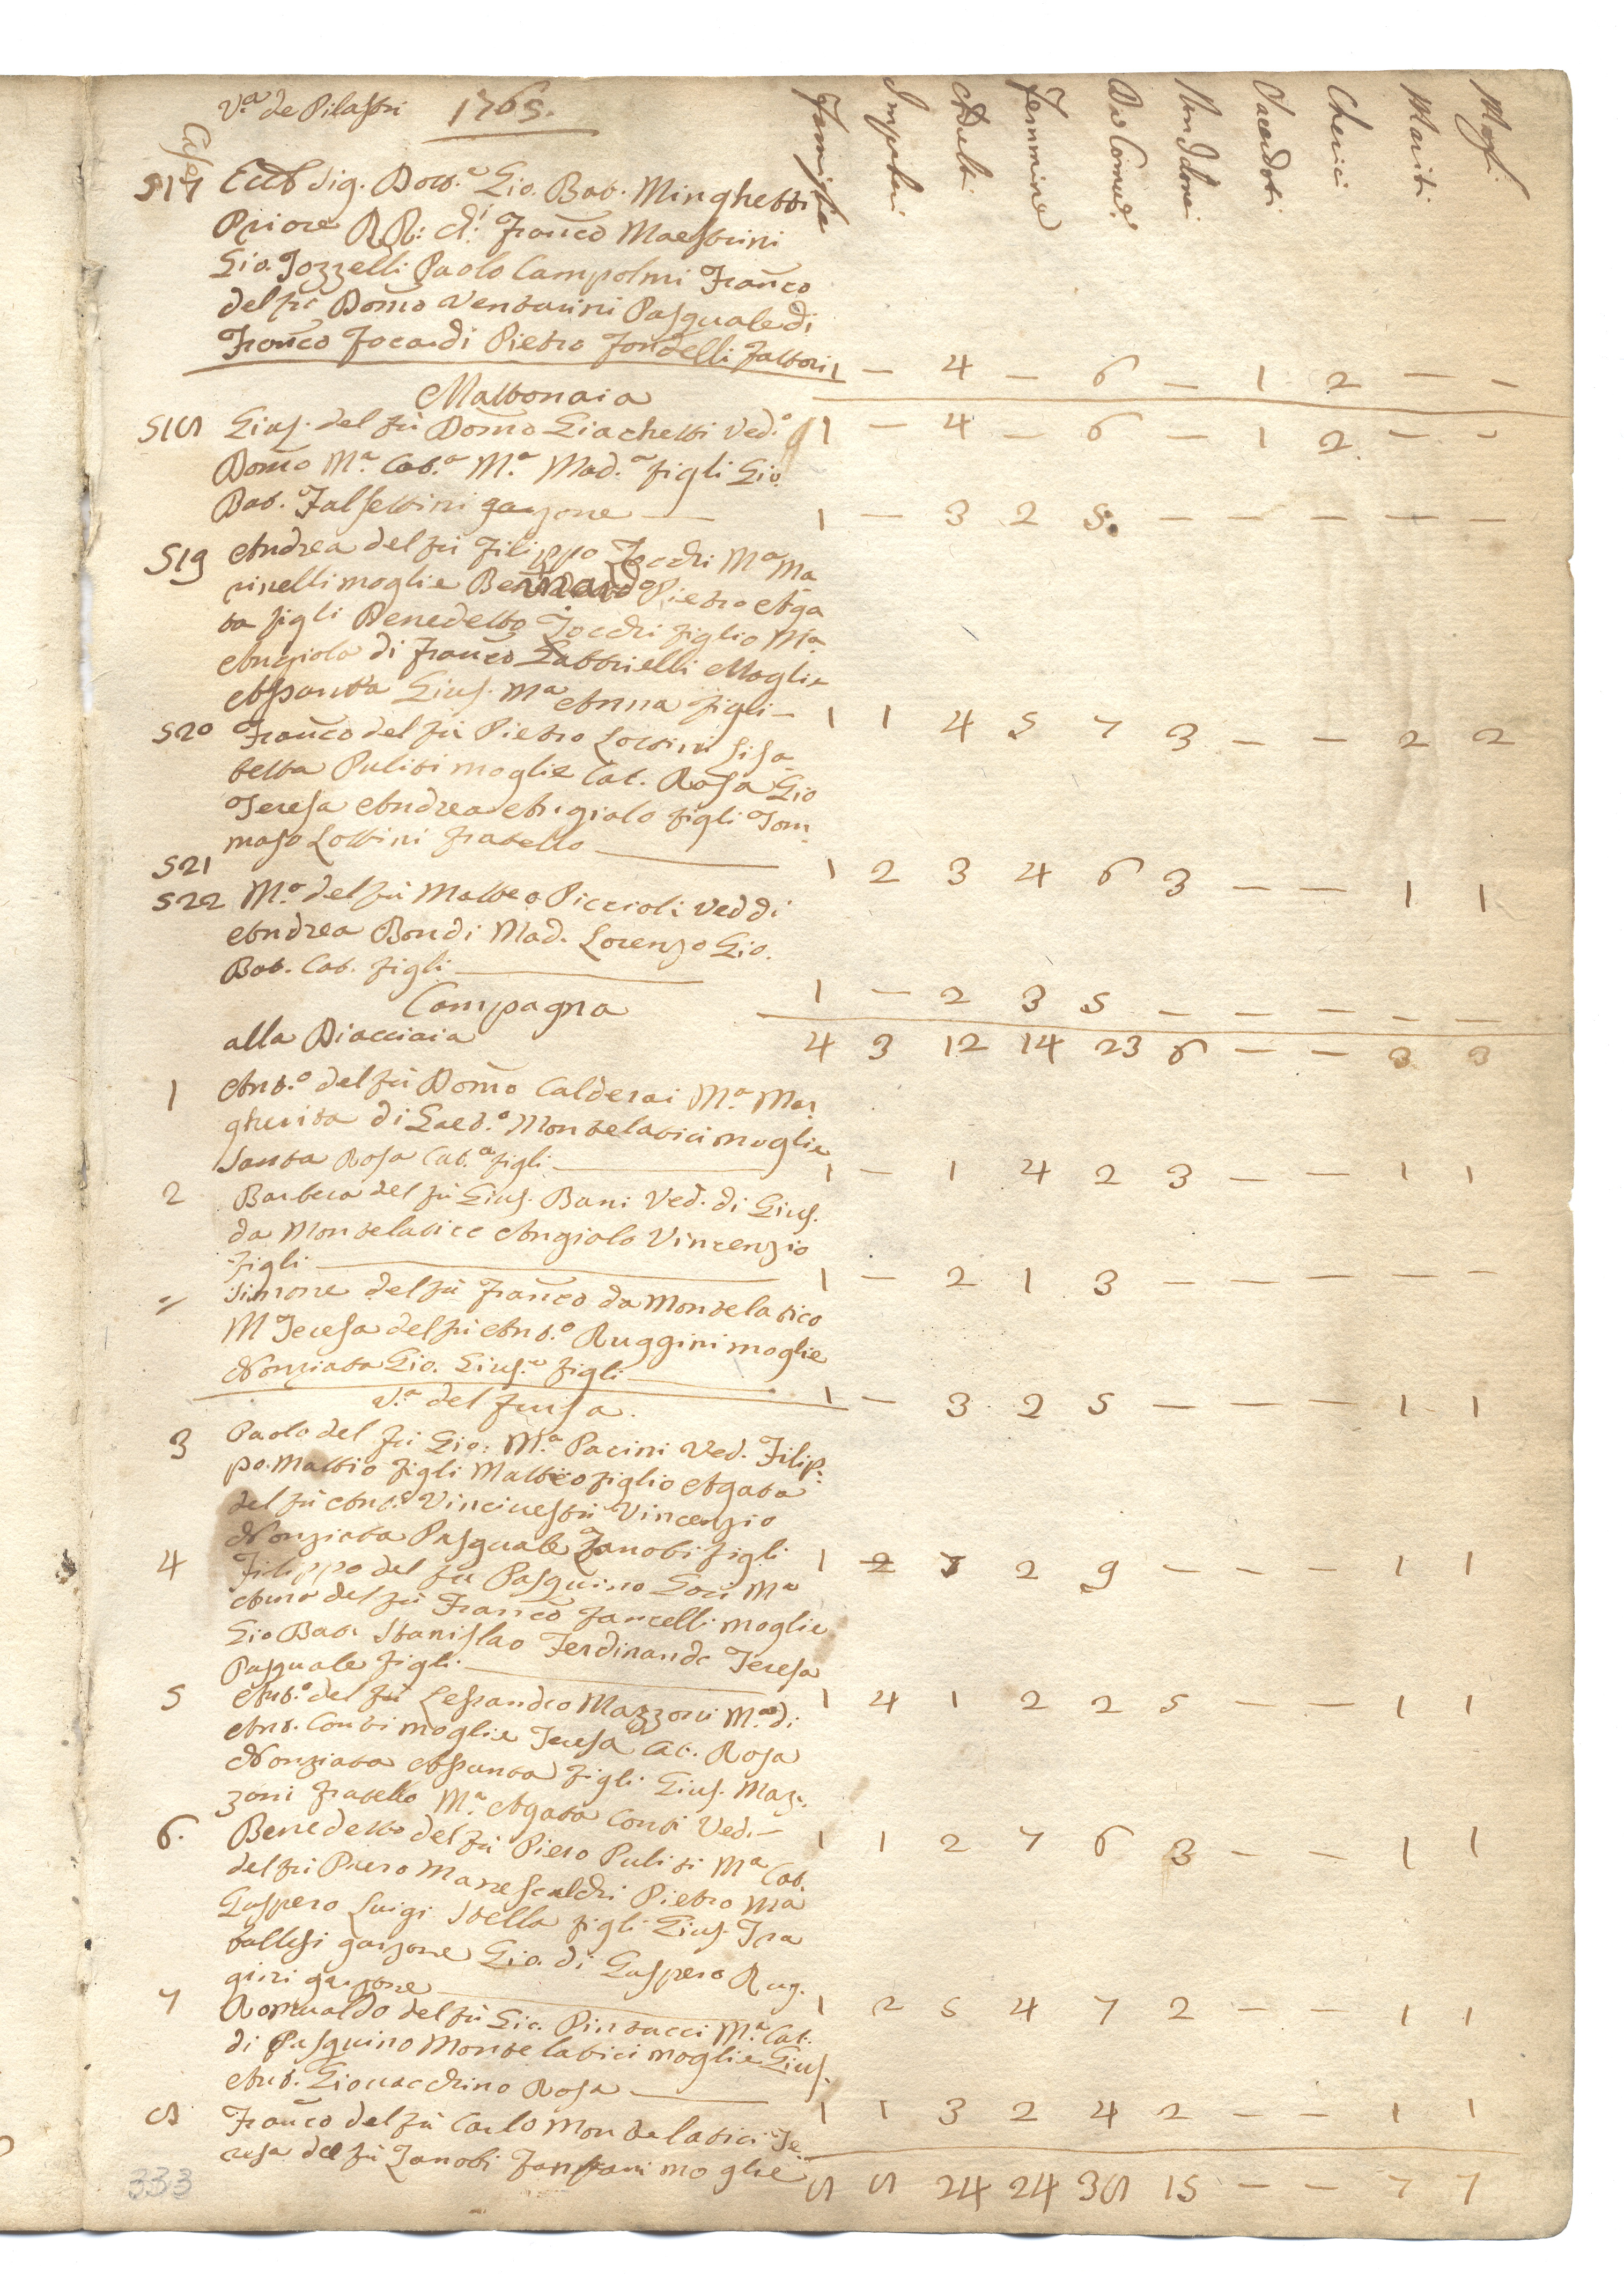 V.a de Pilastri 1765.
Case Famiglie Impuberi Adulti Femmine Da Comun.e Non Idonei Sacerdoti Cherici Mariti Mogli
517 Ecc.o Sig. Dott.e Gio. Bat. Minghetti
Priore RR: A: Franco Maestrini
Gio. Tozzelli Paolo Campolmi Franco
del fù Domo Venturini Pasquale di
Franco Focardi Pietro Fondelli Fattori 1 — 4 — 6 — 1 2 — —
Mattonaia
518 Gius. del fù Domo Giachetti Ved.o 1 — 4 — 6 — 1 2 — —
Domo M.a Cat.a M.a Mad.a figli Gio.
Bat. Falsettini garzone — 1 — 3 2 5 — — — — —
519 Andrea del fù Filippo Zocchi M.a Ma
rinelli moglie Bernardo Pietro Aga
ta figli Benedetto Zocchi figlio M.a
Angiola di Franco Gabbrielli Moglie
Assunta Gius. M.a Anna figli — 1 1 4 5 7 3 — — 2 2
520 Franco del fù Pietro Lottini Lisa
betta Puliti moglie Cat. Rosa Gio
Teresa Andrea Angiolo figli Tom
maso Lottini fratello — 1 2 3 4 6 3 — — 1 1
521
522 M.a del fù Matteo Piccioli Ved di
Andrea Bondi Mad. Lorenzo Gio.
Bat. Cat. figli — 1 — 2 3 5 — — — — —
Campagna
alla Diacciaia 4 3 12 14 23 6 — — 3 3
1 Ant.o del fù Domo Calderai M.a Mar
gherita di Gaet.o Montelatici moglie
Santa Rosa Cat.a figli — 1 — 1 4 2 3 — — 1 1
2 Barbera del fù Gius. Bani Ved. di Gius.
da Montelatice Angiolo Vincenzio
figli — 1 — 2 1 3 — — — — —
= Simone del fù Franco da Montelatico
M Teresa del fù Ant.o Ruggini moglie
Nonziata Gio. Gius.e figli — 1 — 3 2 5 — — — 1 1
V.a del Fusa.
3 Paolo del fù Gio: M.a Pacini Ved. Filip.
po. Mattio figli Matteo figlio Agata
del fù Ant.o Vincinesti Vincenzio
Nonziata Pasquale Zanobi figli 1 2 7 2 9 — — — 1 1
4 Filippo del fù Pasquino Gori M.a
Anna del fù Franco Fancelli moglie
Gio Bat. Stanislao Ferdinando Teresa
Pasquale figli — 1 4 1 2 2 5 — — 1 1
5 Ant.o del fù Lessandro Mazzoni M.a di
Ant. Conti moglie Teresa Cat. Rosa
Nonziata Assunta figli Gius. Maz.
zoni fratello M.a Agata Conti Ved. — 1 1 2 7 6 3 — — 1 1
6. Benedetto del fù Piero Puliti M.a Cat.
del fù Piero Manescalchi Pietro Ma
Gaspero Luigi Stella figli Gius. Tra
ballesi garzone Gio. di Gaspero Rug.
gini garzone — 1 2 5 4 7 2 — — 1 1
7 Romualdo del fù Gio. Pintucci M.a Cat.
di Pasquino Montelatici moglie Gius.
Ant. Giovacchino Rosa — 1 1 3 2 4 2 — — 1 1
8 Franco del fù Carlo Montelatici Te
resa del fù Zanobi moglie 8 8 24 24 38 15 — — 7 7
333